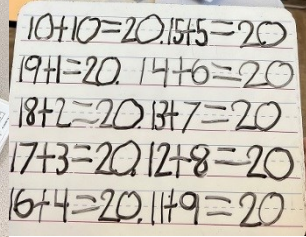 10+10=20. 15+5=20
19+1=20. 14+6=20
18+2=20. 13+7=20
17+3=20. 12+8=20
16+4=20. 11+9=20